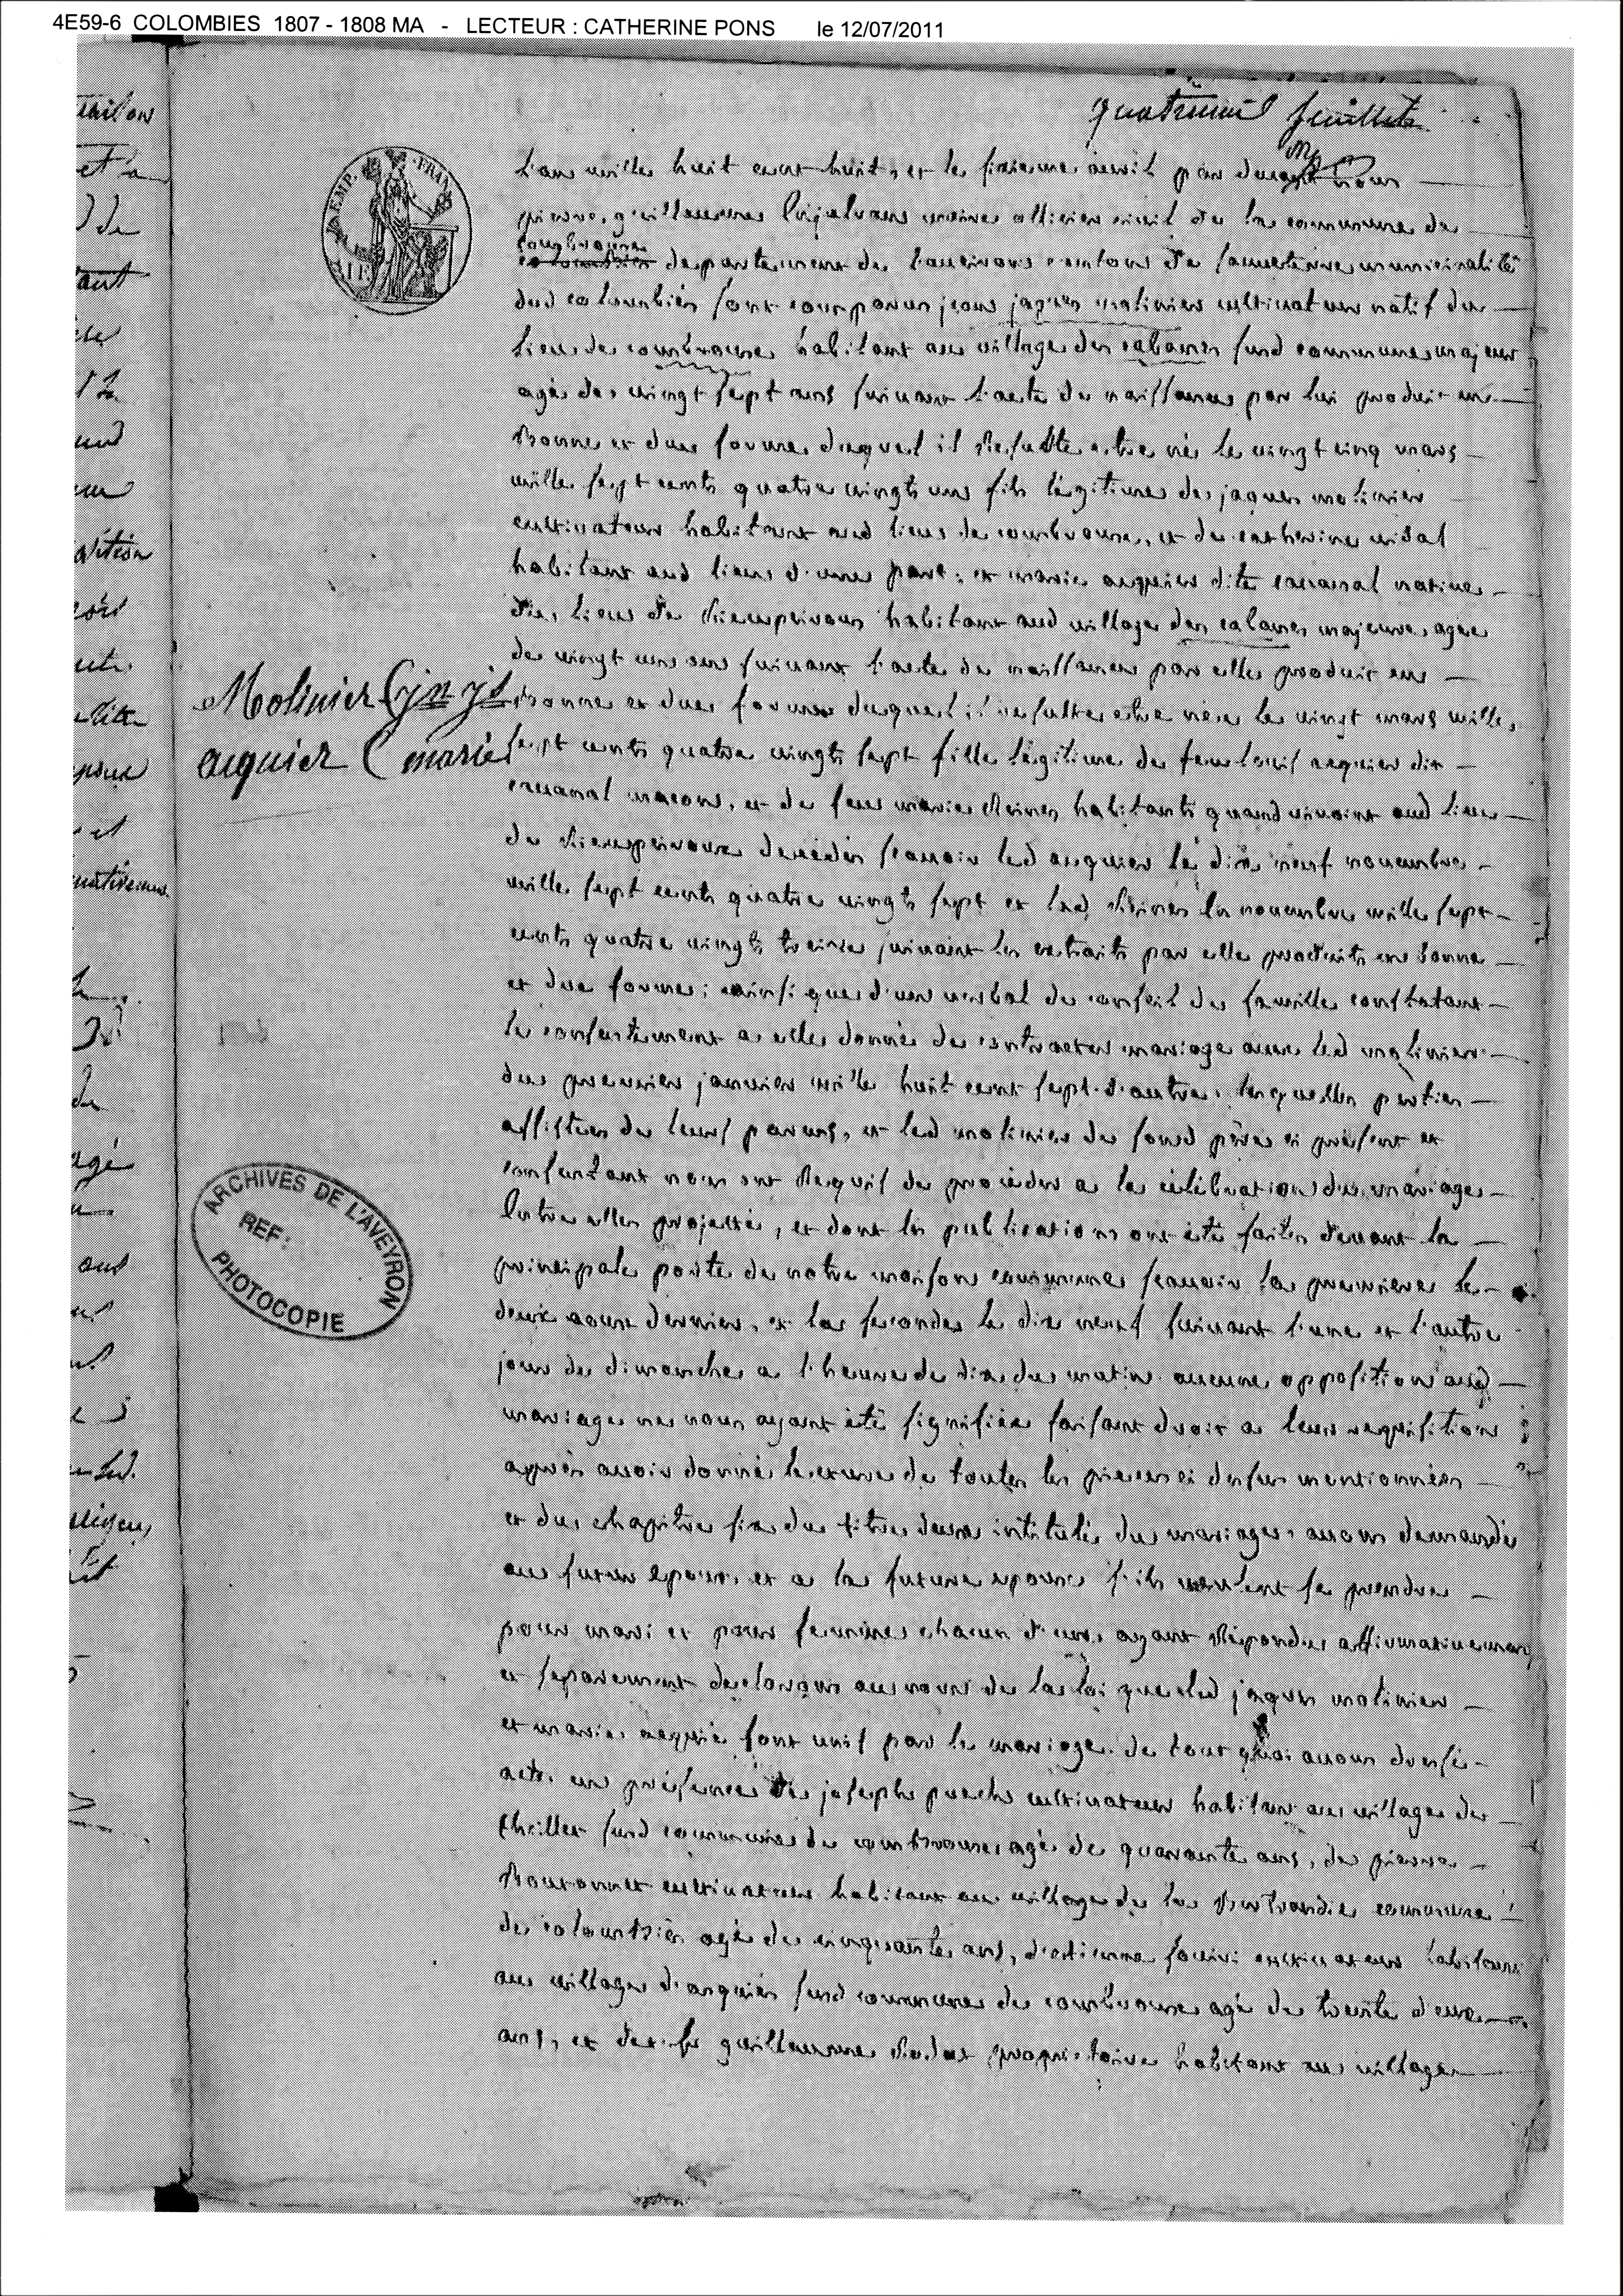 4E59-6 COLOMBIES 1807 - 1808 MA - LECTEUR : CATHERINE PONS le 12/07/2011
quatrieme feuillet
EMP. FRAN
L'an mille huit cent huit, et le sixieme avril par devant nous
pierre, guillaume maire officier civil de la commune de
combrouse
colombies departement de l'aveiron canton de sauveterre municipalité
dud colombiés sont comparus jean jaques molinier cultivateur natif du
lieu de combrouse habitant au village des cabanes susd commune majeur
agé de vingt sept ans suivant l'acte de naissance par lui produit en
Bonne et due forme duquel il Resulte etre né le vingt cinq mars
mille sept cents quatre vingts un fils légitime de jaques molinier
cultivateur habitant aud lieu de combrouse, et de catherine vidal
habitant aud lieu d'une part; et marie aiquier dite native
du lieu de Rieupeiroux habitant aud village des cabanes majeure, agee
de vingt un ans suivant l'acte de naissance par elle produit en
Molinier (jn js
Bonne et due forme duquel il resulte etre nee le vingt mars mille
aiquier (marie
sept cents quatre vingts sept fille légitime de feu louis aiquier dit
macon, et de feue marie habitants quand vivoint aud lieu
de Rieupeiroux decedés scavoir led aiquier le dix neuf novembre
mille sept cents quatre vingts sept et lad le novembre mille sept
cents quatre vingts treize suivant les extraits par elle produits en bonne
et due forme; ainsi que d'un verbal de conseil de famille constatant
le consentement a elle donné de contracter mariage avec led molinier
du premier janvier mille huit cent sept d'autre. lesquelles parties
assistees de leurs parens, et led molinier de sond père ci présent et
consentant nous ont Requis de procéder a la célébration du mariage
Entre elles projetté, et dont les publications ont été faites devant la
principale porte de notre maison commune scavoir la premiere le
deux aout dernier, et la seconde le dix neuf suivant l'une et l'autre
jour de dimanche a l'heure de dix du matin aucune opposition aud
mariage ne nous ayant été signifiée faisant droit a leur requisition
après avoir donné lecture de toutes les pieces ci dessus mentionnées
et du chapitre six du titre deux intitulé du mariage, avons demandé
au futur epoux, et a la future epouse s'ils veulent se prendre
pour mari et pour femme chacun d'eux ayant Répondu affirmativement
et separement declarons au nom de la loi que led jaques molinier
et marie aiquié sont unis par le mariage. de tout quoi avons dressé
acte en présence de joseph puech cultivateur habitant au village de
susd commune de combrouse agé de quarante ans, de pierre
Boutonnet cultivateur habitant au village de la Bertrandie commune
de colombiés agé de cinquante ans, d'etienne cultivateur habitant
au village d'arquiés susd commune de combrouse agé de trente deux
ans, et de sr guillaume proprietaire habitant au village
ARCHIVES DE L'AVEYRON
REF:
PHOTOCOPIE